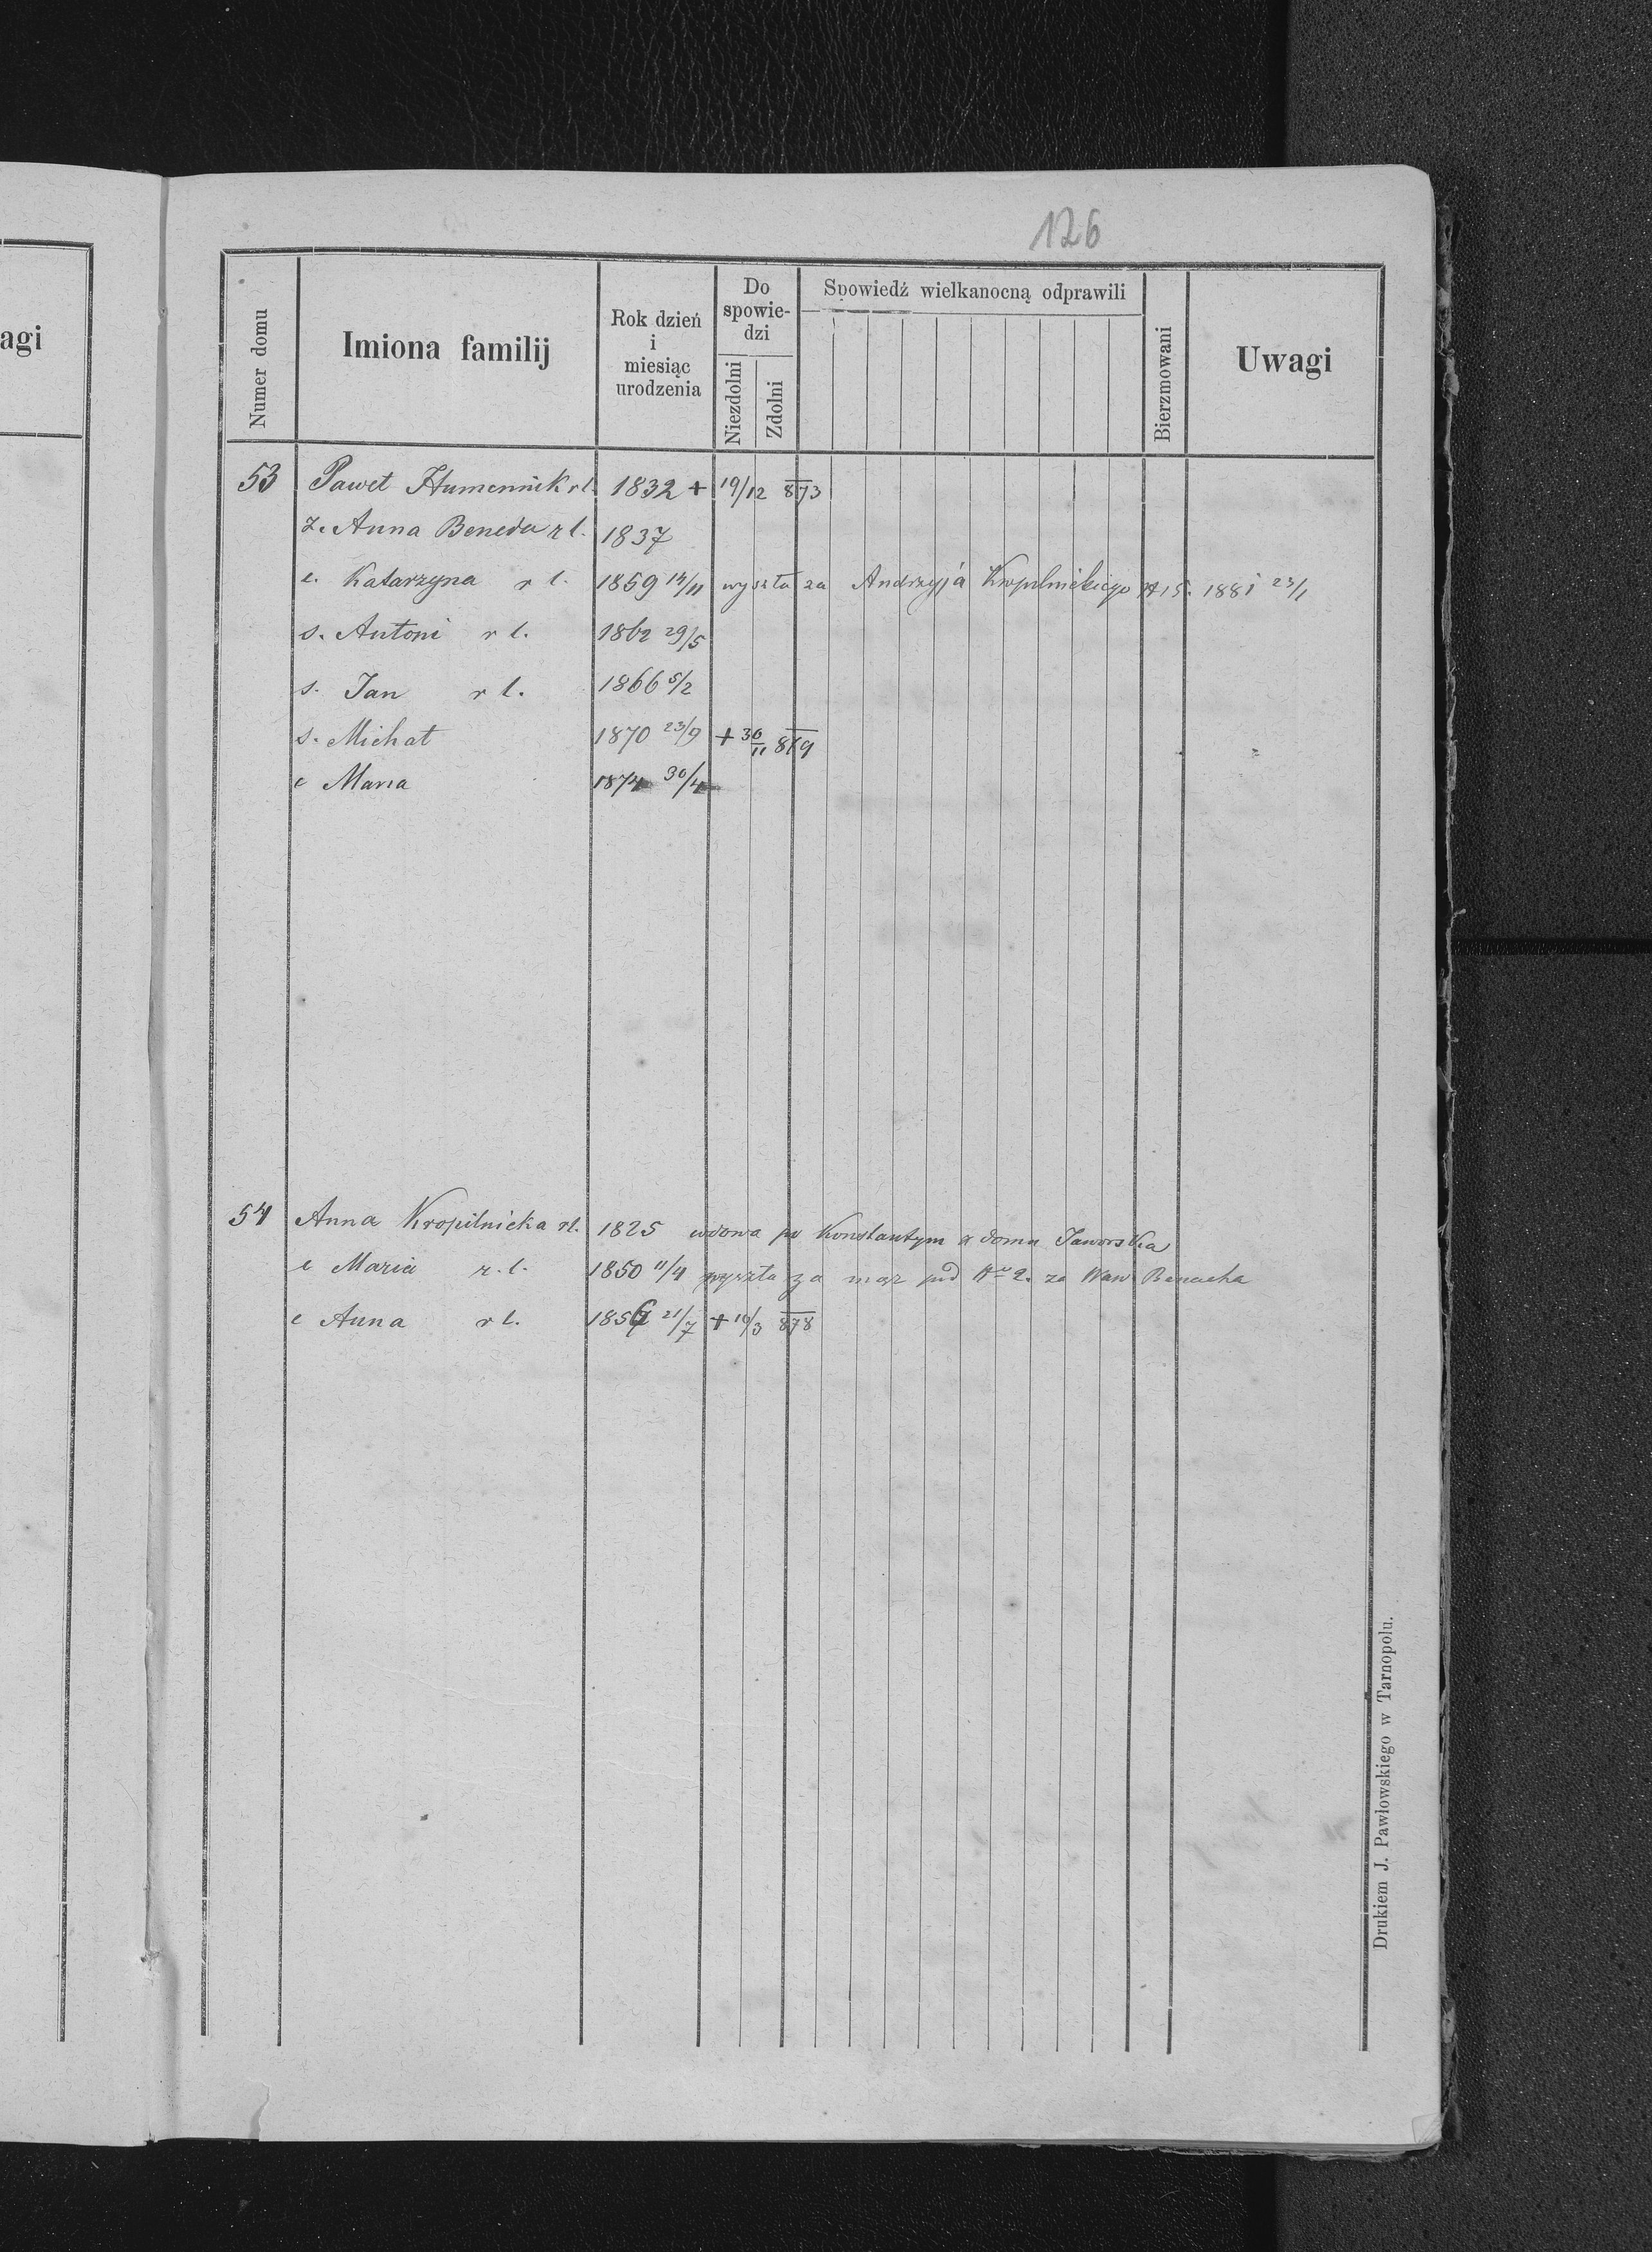 126
agi
Numer domu
Imiona familij
Rok dzień
i
miesiąc
urodzenia
Do
spowie-
dzi
Niezdolni
Zdolni
Spowiedź wielkanocną odprawili
Bierzmowani
Uwagi
53 Paweł Humennik rl. 1832 + 19/12 873
ż. Anna Beneda rl. 1837
c. Katarzyna rl. 1859 14/11 wyszła za Andrzyja Kropilnickiego N 15. 1881 23/1
s. Antoni rl. 1862 29/5
s. Jan rl. 1866 5/2
s. Michał 1870 23/9 + 30/11 879
c Maria 1874 30/4
54 Anna Kropilnicka rl. 1825 wdowa po Konstantym z domu Jaworska
c Maria r.l. 1850 11/4 wyszła za mąż pod No 2. za Waw. Banacha
c Anna rl. 1856 21/7 + 16/3 878
Drukiem J. Pawłowskiego w Tarnopolu.